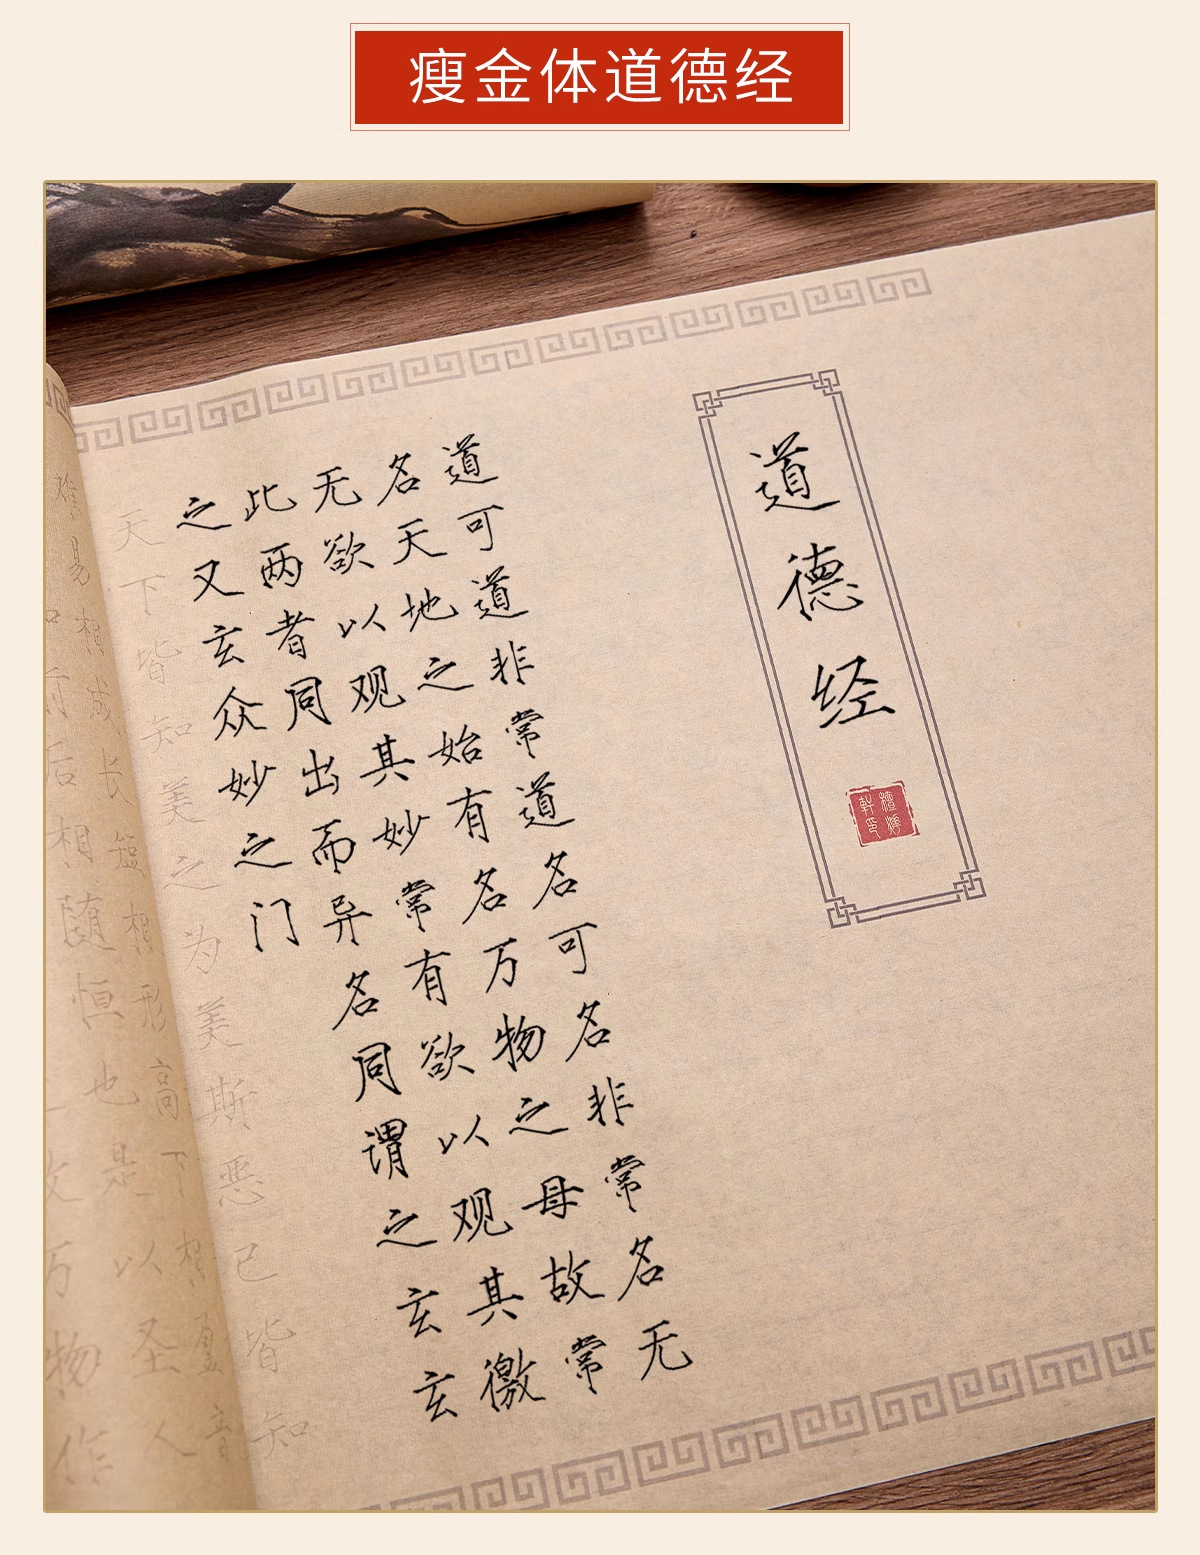 瘦金体道德经
道德经
道可道非常道名可名非常名无
名天地之始有名万物之母故常
无欲以观其妙常有欲以观其徼
此两者同出而异名同谓之玄玄
之又玄众妙之门
天下皆知美之为美斯恶已皆知
难易相成长短相形高下相盈音
前后相随恒也是以圣人
万物作